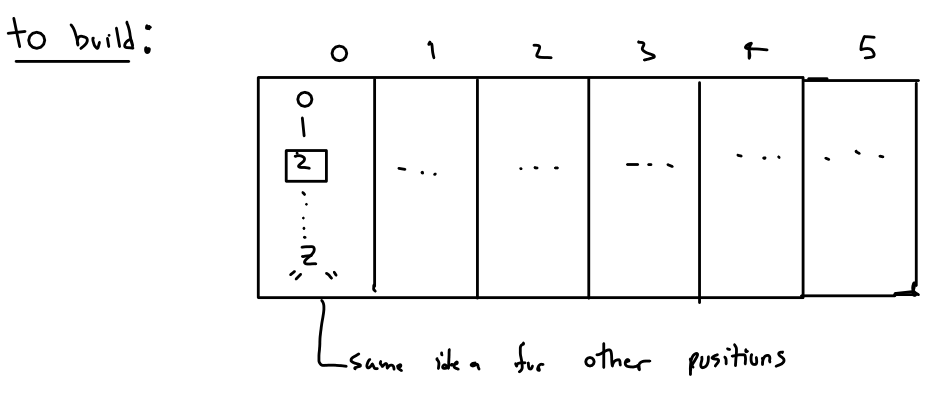 to build:
0 1 2 3 4 5
0
1
2
... ... ... ... ...
Z
" "
same idea for other positions